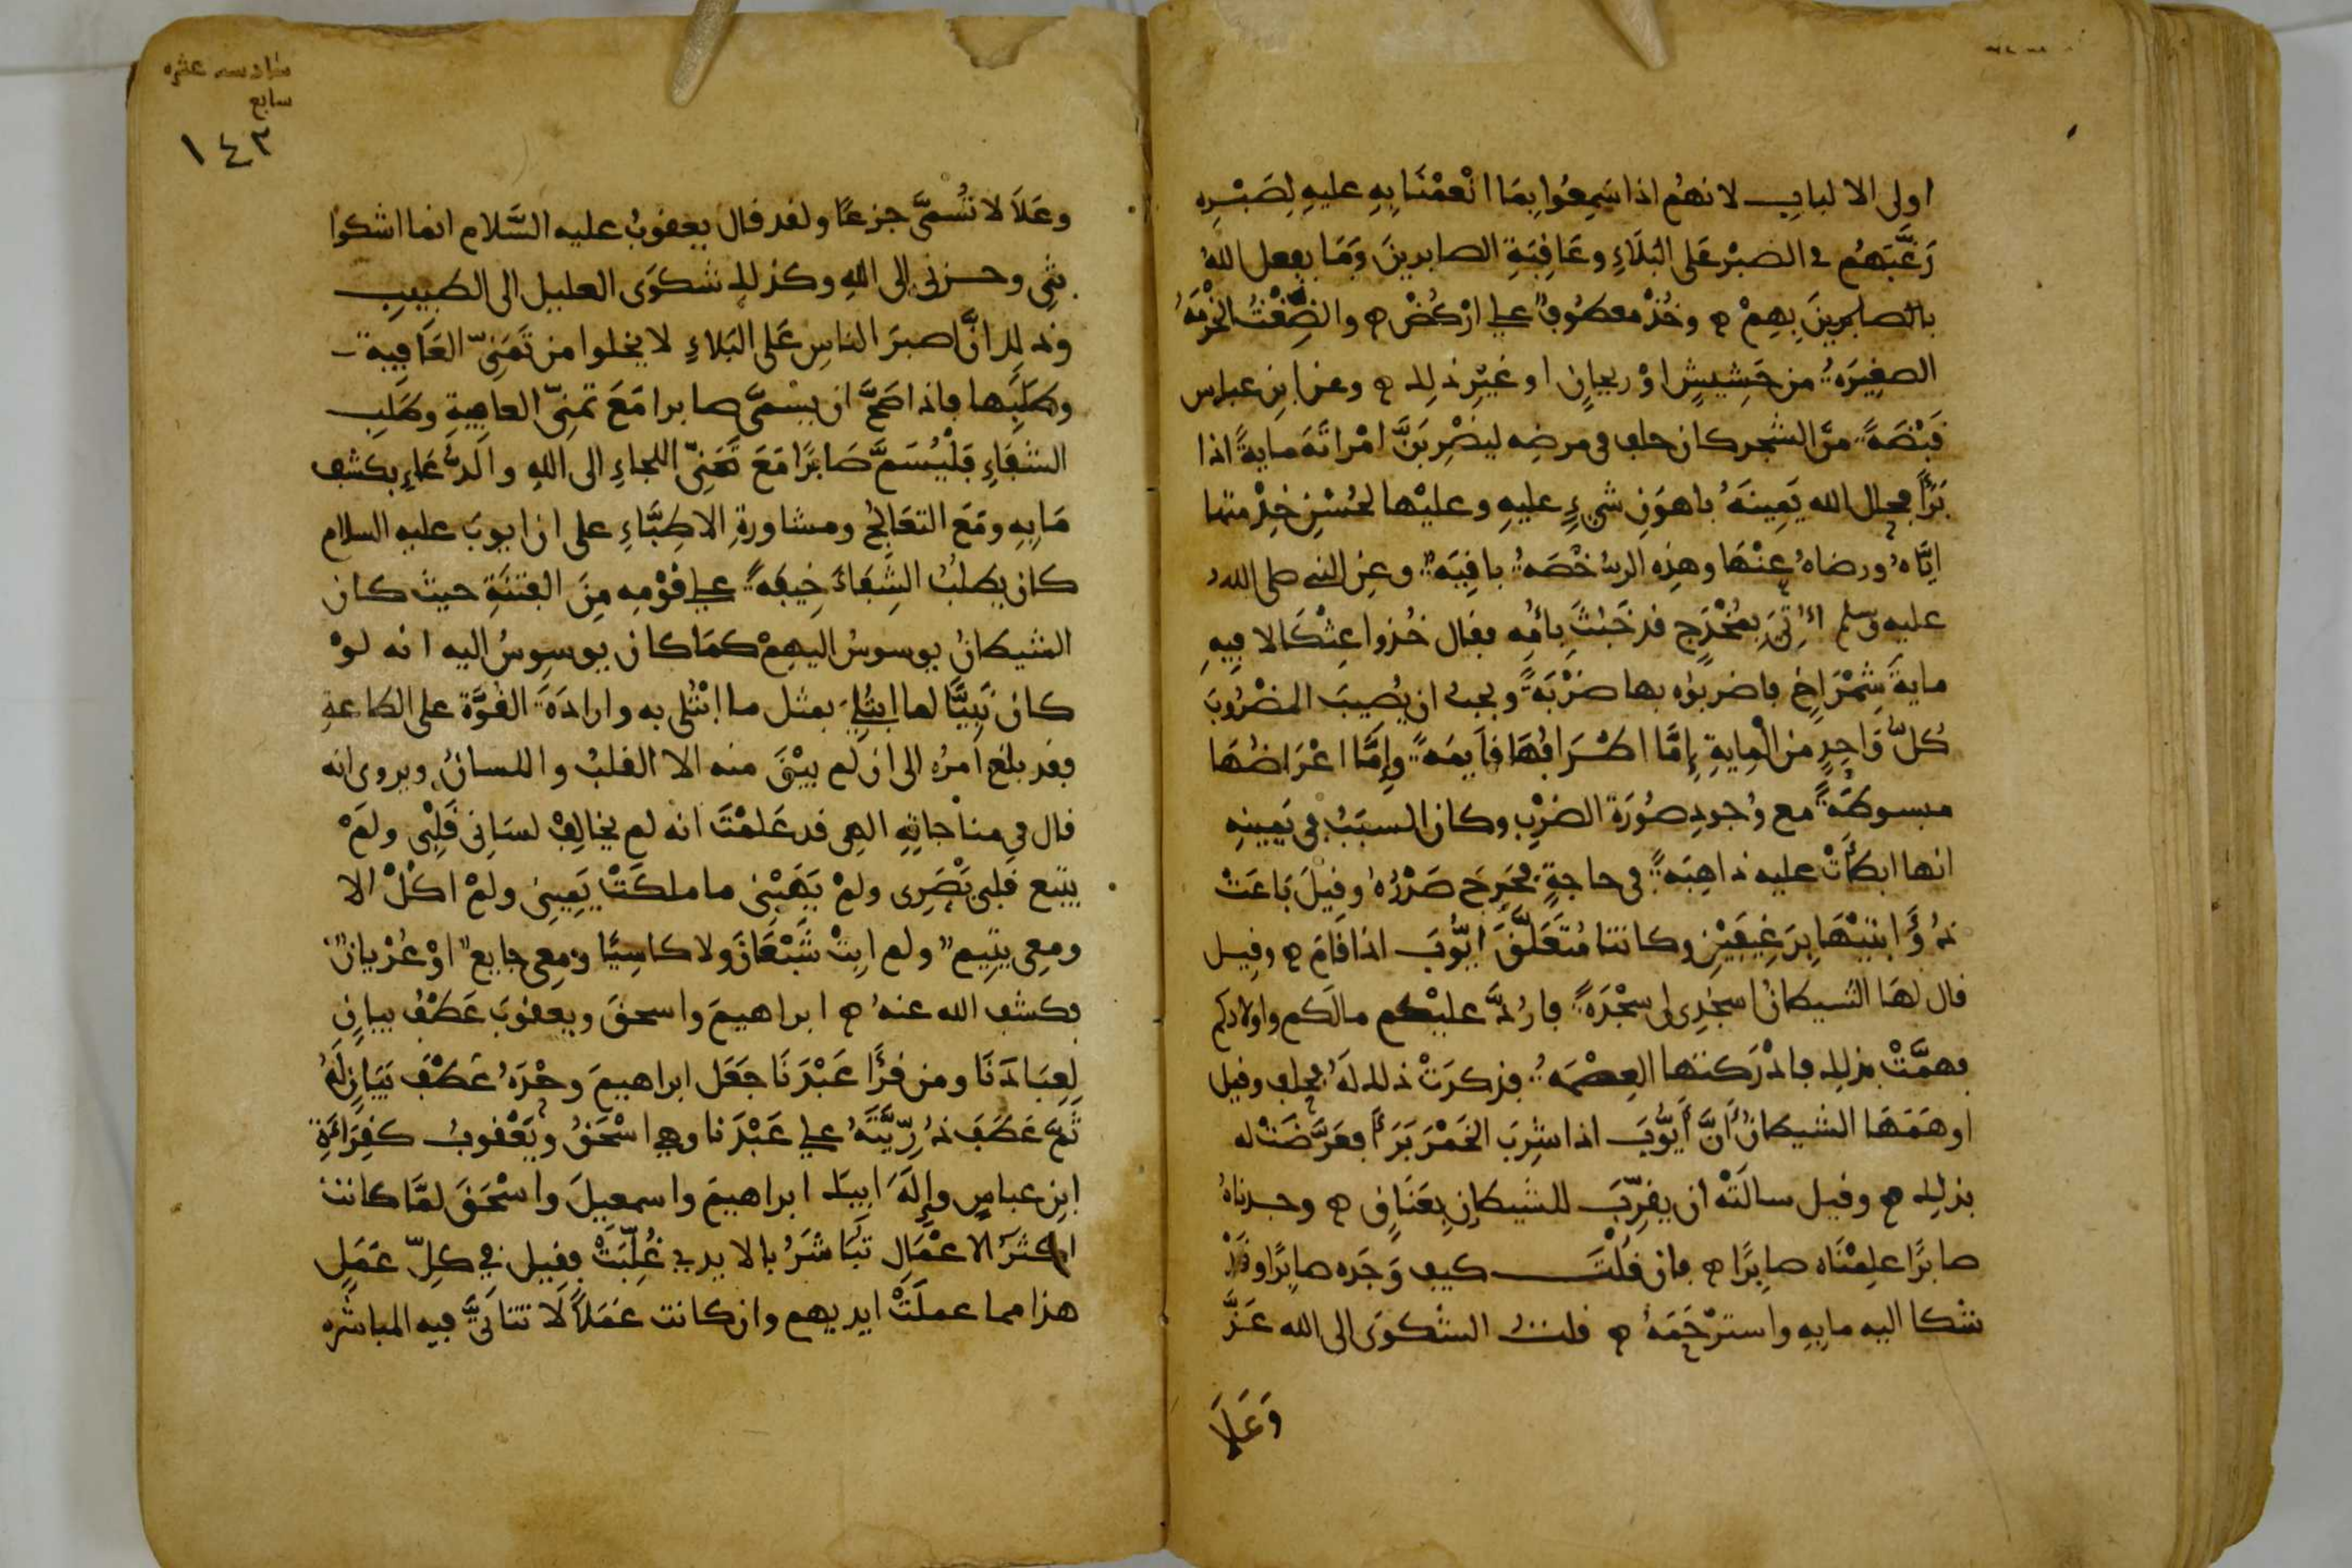 اولى الالباب لانهُم اذا سَمِعُوا بمَا انْعمْنَا بِهِ عليهِ لِصَبْرِه
رَغَّبَهُم في الصَبْر عَلى البَلَاءِ وعَاقِبَةِ الصابرينَ وَمَا يفعل اللهُ
بالصابرينَ بِهِمْ ه وخُذْ معطوفٌ على ارْكُضْ ه والضِّغْثُ الحُزْمَةُ
الصغِيرَةُ من حَشِيشٍ اوْ ريحانٍ او غيْرِ ذلِك ه وعن ابن عباس
قَبْضَةً منَ الشجر كان حلف في مرضِه ليضْرِبَنَّ امْراتَهُ مايةً اذا
بَرَأَ فحلل الله يَمِينَهُ باهوَنِ شيْءٍ عليهِ وعليْها لحُسْنِ خِدْمتها
ايَّاهُ ورضاهُ عنْهَا وهذِه الرُخْصَةُ باقِيَةٌ وعن النبي صلى اللهُ
عليه وسلم أُتِيَ بمُخْدَجٍ قد خَبُثَ بأَمَةٍ فقال خُذوا عِثْكَالا فيهِ
مايةُ شِمْرَاخٍ فاضربوُه بها ضَرْبَةً ويجبُ ان يُصيبَ المضْرُوبَ
كُلُّ وَاحِدٍ من الْمِايةِ إِمَّا اطْرَافُهَا قآيمَةً وإِمَّا اعْرَاضُهَا
مبسوطَةً مع وُجودِ صُورَة الضرْبِ وكان السبَبُ في يَمِينِهِ
انها ابطأَتْ عليه ذاهِبَةً في حاجةٍ فحَرِجَ صَدْرُهُ وقيلَ بَاعَتْ
ذُؤَابتيْهَا برَغِيفَيْنِ وكانتا مُتَعَلَّقَ أيُّوبَ اذا قَامَ ه وقيل
قال لهَا الشيطانُ اسجُدِى لى سجْدَةً فارُدُّ عليْكم مالَكم واولادكم
فهمَّتْ بذلك فادْرَكتها العِصْمَةُ فذكرَتْ ذلك لَهُ فحلف وقيل
اوهَمَهَا الشيطانُ أَنَّ أَيُّوبَ اذا شرِبَ الخَمْرَ بَرَأَ فعَرَّضَتْ له
بذلِك ه وقيل سالَتْهُ ان يقرِّبَ للشيطانِ بِعَنَاقٍ ه وجدناهُ
صابرًا علِمْنَاه صابِرًا ه فان قُلْتَ كيف وَجَده صابِرًا وقَدْ
شكا اليه مابِهِ واستَرْحَمَهُ ه قلتُ الشكوَى الى الله عَزَّ
وَعَلَا
سادسه عشره
سابع
١٤٣
وعَلَا لا تُسَمَّى جزعًا ولقد قال يعقوبُ عليه السَّلام انما اشكوُا
بثِى وحزنى الى اللهِ وكذلك شكوَى العليل الى الطبيبِ
وذلك انَّ اصبرَ الناسِ عَلى البَلاءِ لا يخلوا من تَمَنِّى العَافِيةِ
وطَلَبِها فاذا صَحَّ ان يسْمَّى صابرا مَعَ تمنِّى العافيةِ وطَلَبِ
الشفَاءِ فَلْيُسَمَّ صَابرًا مَعَ تَمَنِّى اللجاءِ الى اللهِ والدُّعَاءِ بكشف
مَابِهِ ومَعَ التعَالجُ ومشاورةِ الاطِبَّاءِ على ان ايوبَ عليه السلام
كان يطلبُ الشِفَاءَ خِيفةً على قوْمِه مِنَ الفتنَةِ حيث كان
الشيطانُ يوسوسُ اليهِمْ كمَا كان يوسوِسُ اليه انه لوْ
كان نَبِيًّا لما ابتُلِيَ بمثل ما ابْتُلى به وارادَةَ القُوَّة على الطاعةِ
فقد بلغ امرُه الى ان لم يبْقَ منه الا القلبُ واللسانُ ويروى انه
قال في مناجاتِهِ الهي قد عَلمْتَ انه لم يخالِفْ لسَانى قَلْبِى ولمْ
يتبع قلبى بَصَرِى ولمْ يَهَبْنِى ما ملكَتْ يَمِينِى ولمْ اكُلْ الا
ومعِى يتيمٌ ولم ابِتْ شَبْعَانَ ولا كاسِيًا ومعِى جايعٌ اوْ عُرْيانٌ
فكشف الله عنهُ ه ابراهيمَ واسحقَ ويعقوبَ عَطْفُ بيانٍ
لِعِبَادنَا ومن قرَأَ عَبْدَنَا جَعَل ابراهيمَ وحْدَهُ عَطْفَ بَيَانٍ لَهُ
ثُمّ عَطَفَ ذُرِّيَّتَهُ على عَبْدَنا وهي اسْحَقُ ويَعْقوبُ كقِرَاءَةِ
ابن عباسٍ وإِلَهَ ابيك ابراهيمَ واسمعيلَ واسْحَقَ لمَّا كانت
اكثرَ الاعْمَالِ تُبَاشَرُ بالايدي غُلِّبَتْ فقيل في كلِّ عَمَلٍ
هذا مما عملَتْ ايديهم وان كانت عَمَلًا لَا تتاتَّى فيه المباشره